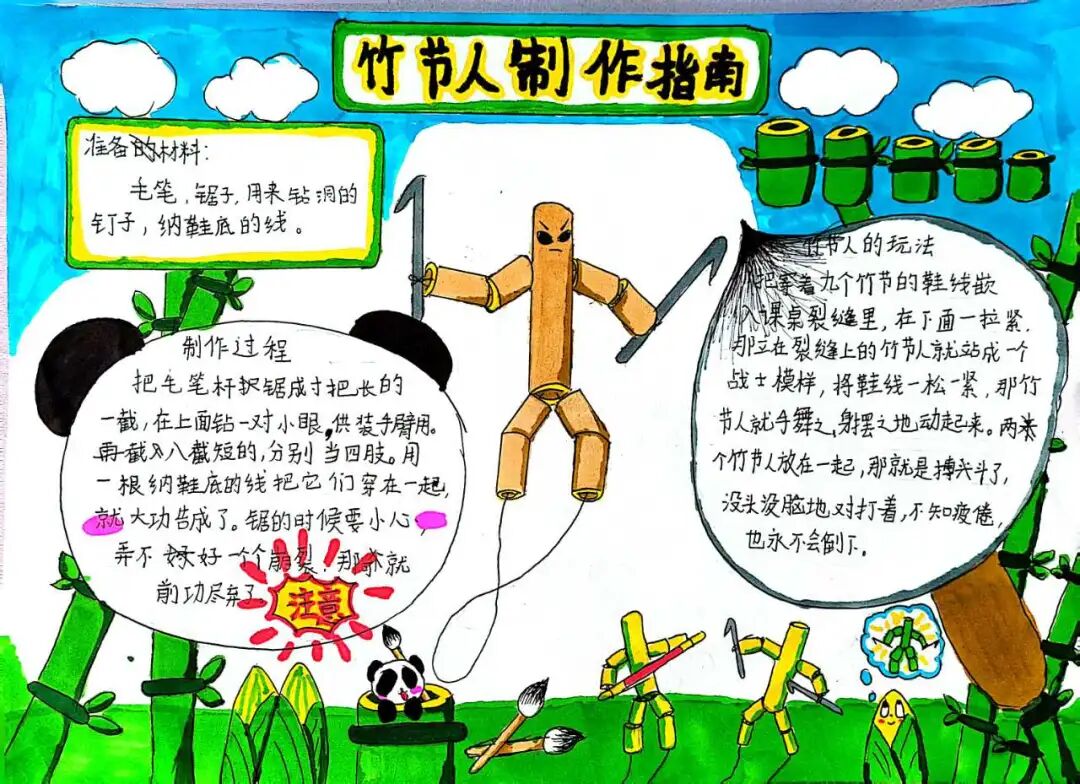 竹节人制作指南
准备的材料：
毛笔，锯子，用来钻洞的
钉子，纳鞋底的线。
制作过程
把毛笔杆锯成寸把长的
一截，在上面钻一对小眼，供装手臂用。
再截八截短的，分别当四肢。用
一根纳鞋底的线把它们穿在一起，
就大功告成了。锯的时候要小心，
弄不好一个个崩裂！那就
前功尽弃了
注意
竹节人的玩法
把穿着九个竹节的鞋线嵌
入课桌裂缝里，在下面一拉紧，
那立在裂缝上的竹节人就站成一个
战士模样，将鞋线一松一紧，那竹
节人就手舞之，身摆之地动起来。两
个竹节人放在一起，那就是搏斗了，
没头没脑地对打着，不知疲倦，
也永不会倒下。